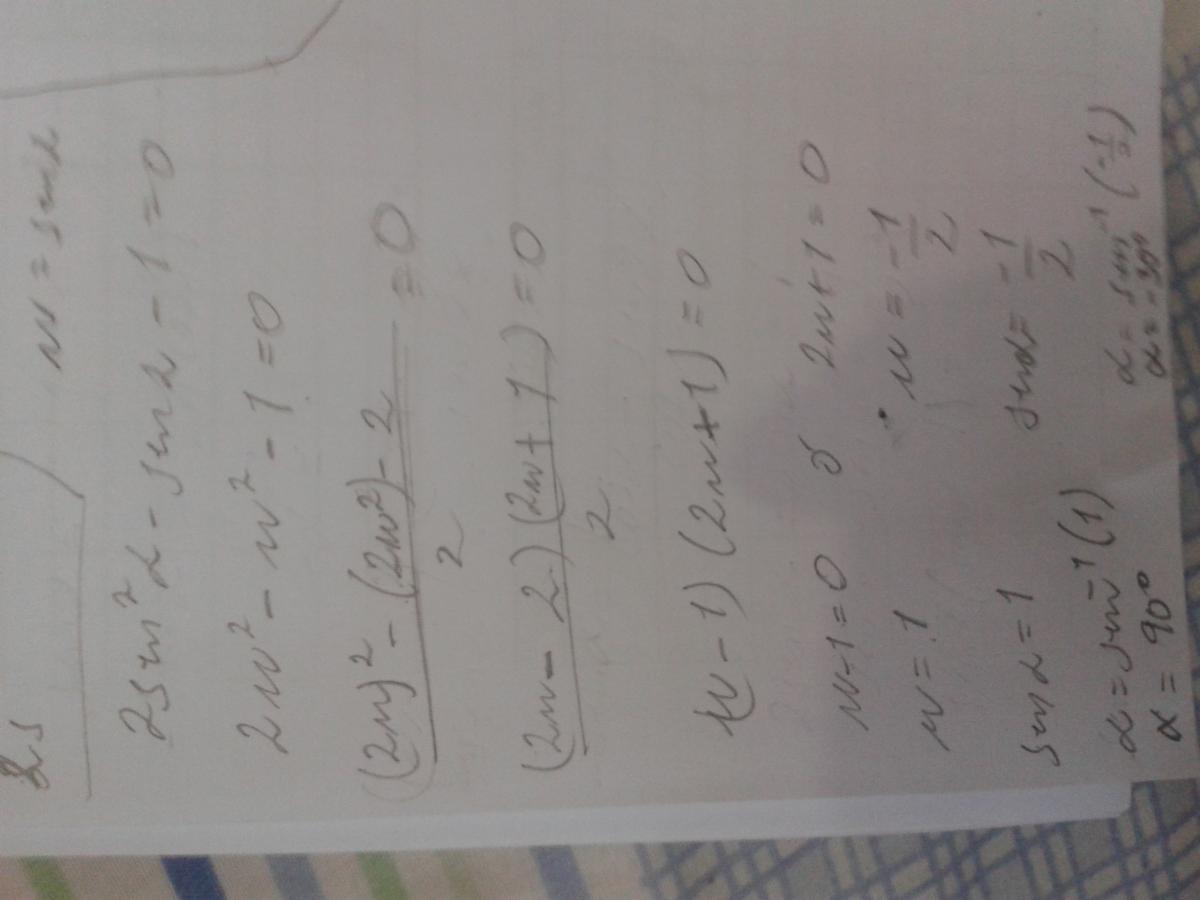 w = sen α
2sen²α - sen α - 1 = 0
2w² - w² - 1 = 0
(2w)² - (2w²) - 2 / 2 = 0
(2w - 2)(2w + 1) / 2 = 0
(w - 1)(2w + 1) = 0
w - 1 = 0 ó 2w + 1 = 0
w = 1 w = -1/2
sen α = 1 sen α = -1/2
α = sen⁻¹(1) α = sen⁻¹(-1/2)
α = 90° α = -30°